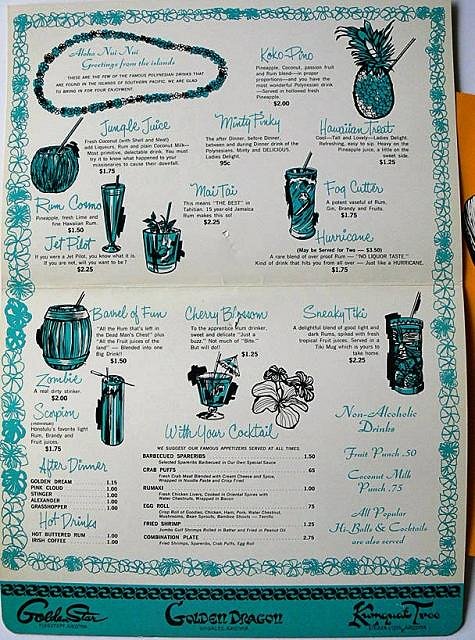 Aloha Nui Nui
Greetings from the islands
THESE ARE THE FEW OF THE FAMOUS POLYNESIAN DRINKS THAT
ARE FOUND IN THE ISLANDS OF SOUTHERN PACIFIC. WE ARE GLAD
TO BRING IN FOR YOUR ENJOYMENT.
Koko Pino
Pineapple, Coconut, passion fruit
and Rum blend—in proper
proportions—and you have the
most wonderful Polynesian drink.
—Served in hollowed fresh
Pineapple.
$2.00
Jungle Juice
Fresh Coconut (with Shell and Meat)
add Liqueurs, Rum and plain Coconut Milk—
Most primitive, delectable drink. You must
try it to know what happened to your
missionaries to cause their downfall.
$1.75
Minty Finky
The after Dinner, before Dinner,
between and during Dinner drink of the
Polynesians. Minty and DELICIOUS.
Ladies Delight.
95c
Hawaiian Treat
Cool—Tall and Lovely—Ladies Delight.
Refreshing, easy to sip. Heavy on the
Pineapple juice, a little on the
sweet side.
$1.25
Rum Cosmo
Pineapple, fresh Lime and
fine Hawaiian Rum.
$1.50
Mai Tai
This means "THE BEST" in
Tahitian. 15 year old Jamaica
Rum makes this so!
$2.25
Fog Cutter
A potent vaseful of Rum,
Gin, Brandy and Fruits.
$1.75
Jet Pilot
If you were a Jet Pilot, you know what it is.
If you are not, will you want to be?
$2.25
Hurricane
(May be Served for Two — $3.50)
A rare blend of over proof Rum — "NO LIQUOR TASTE."
Kind of drink that hits you from all over — Just like a HURRICANE.
$1.75
Barrel of Fun
"All the Rum that's left in
the Dead Man's Chest" plus
"All the Fruit juices of the
land" — Blended into one
Big Drink!!
$1.50
Cherry Blossom
To the apprentice Rum drinker,
sweet and delicate "Just a
buzz." Not much of "Bite."
But will do!!
$1.25
Sneaky Tiki
A delightful blend of good light and
dark Rums, spiked with fresh
tropical Fruit juices. Served in a
Tiki Mug which is yours to
take home.
$2.25
Zombie
A real dirty stinker.
$2.00
Scorpion
Honolulu's favorite light
Rum, Brandy and
Fruit juices.
$1.75
With Your Cocktail
WE SUGGEST OUR FAMOUS APPETIZERS SERVED AT ALL TIMES
BARBECUED SPARERIBS 1.50
Selected Spareribs Barbecued in Our Own Special Sauce
CRAB PUFFS 65
Fresh Crab Meat Blended with Cream Cheese and Spice,
Wrapped in Noodle Paste and Crisp Fried
RUMAKI 1.00
Fresh Chicken Livers, Cooked in Oriental Spices with
Water Chestnuts, Wrapped in Bacon
EGG ROLL 75
Crisp Roll of Goodies, Chicken, Ham, Pork, Water Chestnut,
Mushrooms, Bean Sprouts, Bamboo Shoots —
FRIED SHRIMP 1.25
Jumbo Gulf Shrimps Rolled in Batter and Fried in Peanut Oil
COMBINATION PLATE 2.75
Fried Shrimps, Spareribs, Crab Puffs, Egg Roll
Non-Alcoholic
Drinks
Fruit Punch .50
Coconut Milk
Punch .75
All Popular
Hi-Balls & Cocktails
are also served
After Dinner
GOLDEN DREAM 1.15
PINK CLOUD 1.00
STINGER 1.00
ALEXANDER 1.00
GRASSHOPPER 1.00
Hot Drinks
HOT BUTTERED RUM 1.00
IRISH COFFEE 1.00
Golden Star
FLAGSTAFF, ARIZONA
Golden Dragon
NOGALES, ARIZONA
Kumquat Tree
ARIZONA